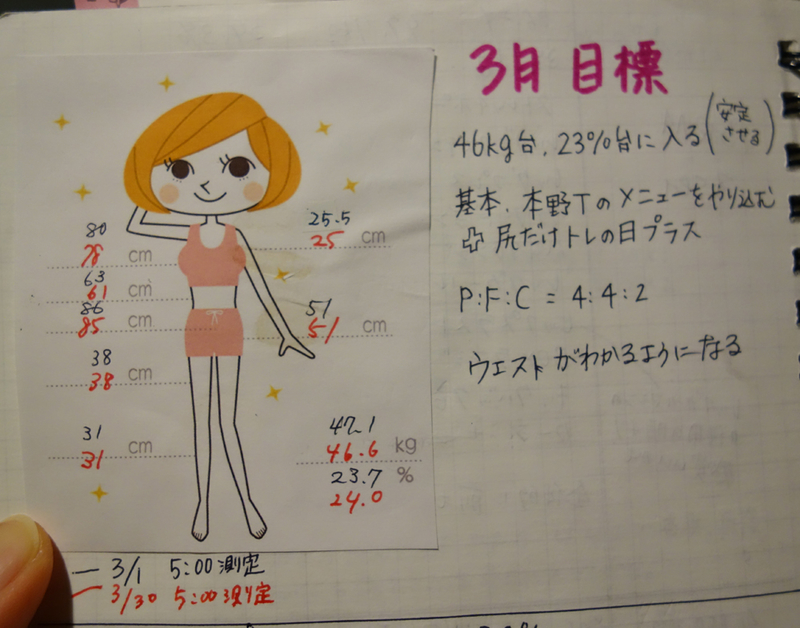 3月 目標
46kg台、23%台に入る(安定させる)
基本、本野Tのメニューをやり込む
尻だけトレの日プラス
P:F:C = 4:4:2
ウエストがわかるようになる
80
78 cm
63
61 cm
86
85 cm
38
38 cm
31
31 cm
25.5
25 cm
51
51 cm
47.1
46.6 kg
23.7 %
24.0
3/1 5:00 測定
3/30 5:00 測定